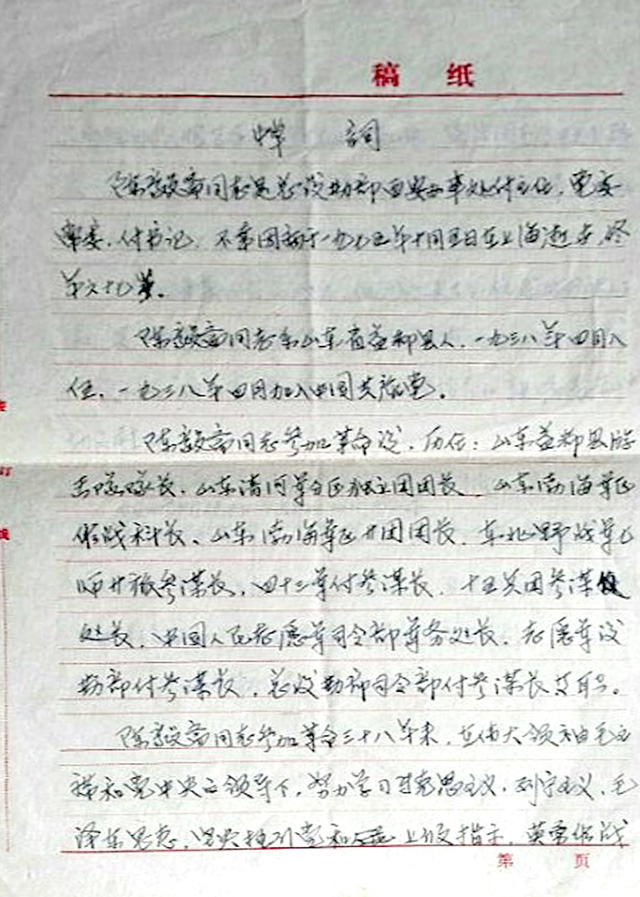 稿纸
悼词
同志是总后勤部西安办事处付主任,党委
常委、付书记,不幸因病于一九七五年十月五日在上海逝世,终
年六十七岁。
同志系山东省益都县人,一九三八年四月入
伍,一九三八年四月加入中国共产党。
同志参加革命后,历任:山东益都县游
击队队长、山东清河军分区独立团团长、山东渤海军区
作战科长、山东渤海军区廿团团长、东北野战军七
师廿旅参谋长,四十三军付参谋长,十五兵团参谋
处长,中国人民志愿军司令部军务处长,志愿军后
勤部付参谋长,总后勤部司令部付参谋长等职。
同志参加革命三十八年来,在伟大领袖毛主
席和党中央的领导下,努力学习马克思主义、列宁主义、毛
泽东思想,坚决执行党和上级指示,英勇作战
第 页
订
线